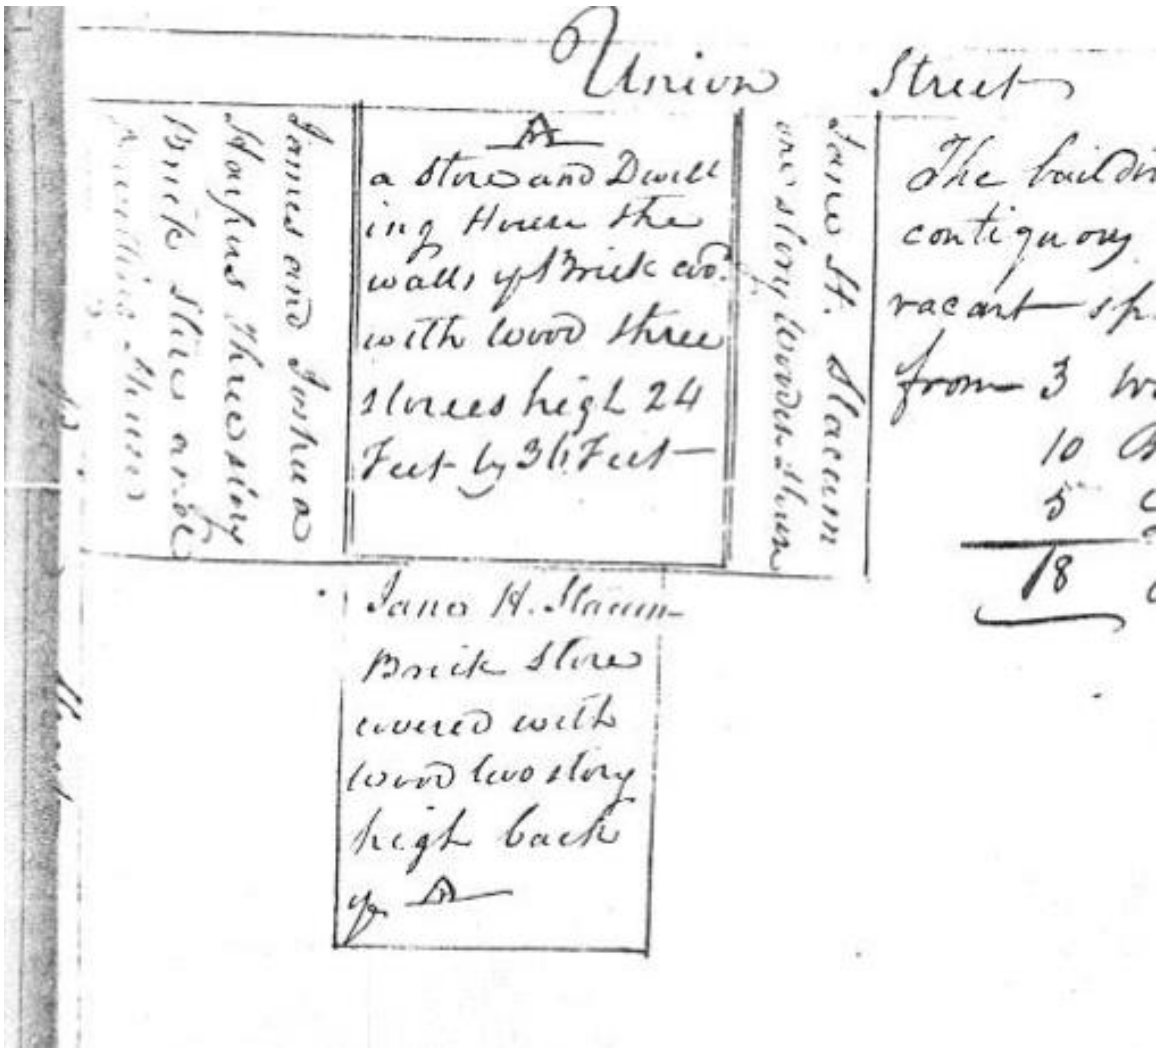 Union Street
James and Joshua
Harpus Three story
Brick Store and
Dwelling House
A
a Store and Dwell
ing House the
walls of Brick cov.d
with wood three
storees high 24
Feet by 36 Feet
Jane H. Slacum
one story wooden House
The buildin
contiguous
vacant sp
from 3 wo
10
5
18
Jane H. Slacum
Brick Store
covered with
wood two story
high back
of A